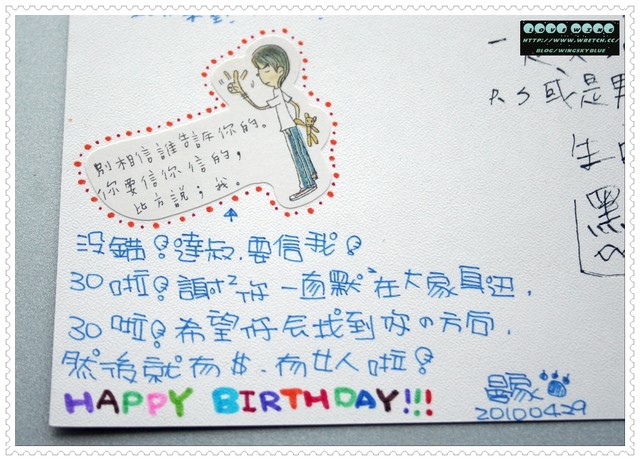 LOVE WING
HTTP://WWW.WRETCH.CC/
BLOG/WINGSKYBLUE
P.S 或是
生
別相信誰告訴你的。
你要信你信的，
比方說；我。
沒錯!達叔.要信我!
30啦!謝謝你一直默默在大家身邊.
30啦!希望你会找到你の方向.
然後就有$.有女人啦!
HAPPY BIRTHDAY!!!
20100429